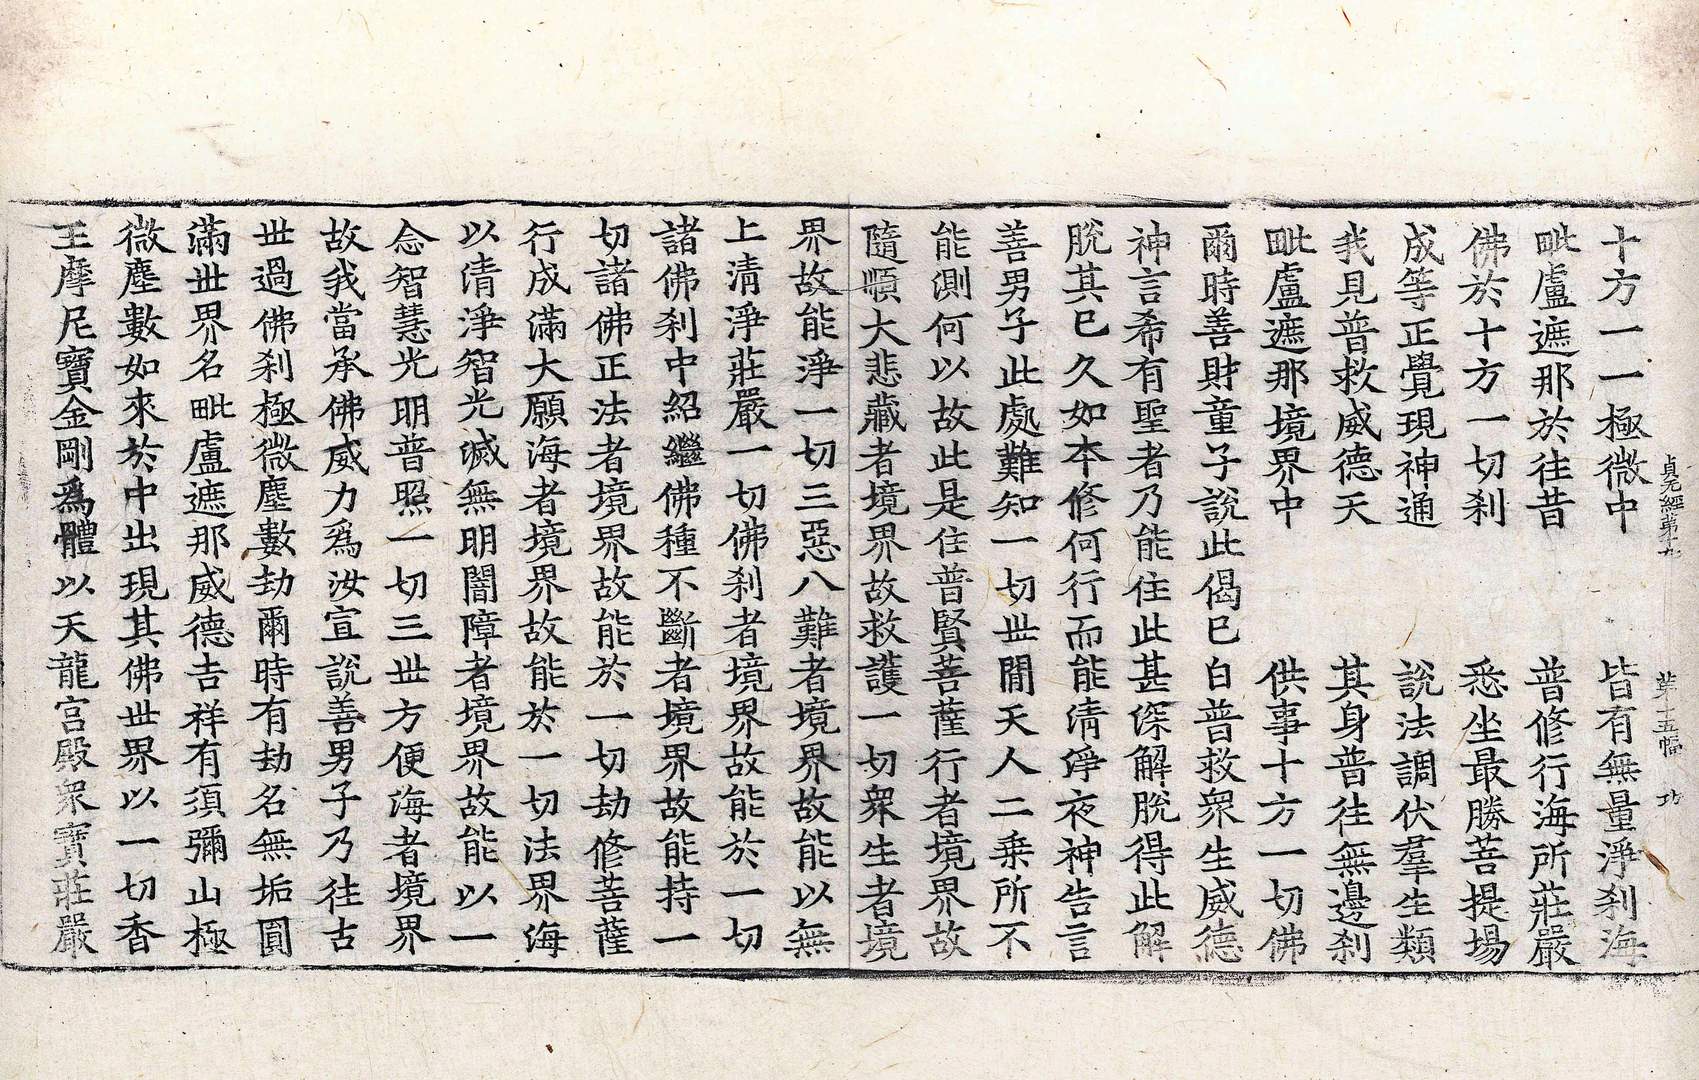 貞元經第十九 第十五幅 功
十方一一極微中 皆有無量淨刹海
毗盧遮那於往昔 普修行海所莊嚴
佛於十方一切刹 悉坐最勝菩提場
成等正覺現神通 說法調伏羣生類
我見普救威德天 其身普往無邊刹
毗盧遮那境界中 供事十方一切佛
爾時善財童子說此偈已白普救衆生威德
神言希有聖者乃能住此甚深解脫得此解
脫其已久如本修何行而能清淨夜神告言
善男子此處難知一切世間天人二乘所不
能測何以故此是住普賢菩薩行者境界故
隨順大悲藏者境界故救護一切衆生者境
界故能淨一切三惡八難者境界故能以無
上清淨莊嚴一切佛刹者境界故能於一切
諸佛刹中紹繼佛種不斷者境界故能持一
切諸佛正法者境界故能於一切劫修菩薩
行成滿大願海者境界故能於一切法界海
以清淨智光滅無明闇障者境界故能以一
念智慧光明普照一切三世方便海者境界
故我當承佛威力爲汝宣說善男子乃往古
世過佛刹極微塵數劫爾時有劫名無垢圓
滿世界名毗盧遮那威德吉祥有須彌山極
微塵數如來於中出現其佛世界以一切香
王摩尼寶金剛爲體以天龍宮殿衆寶莊嚴